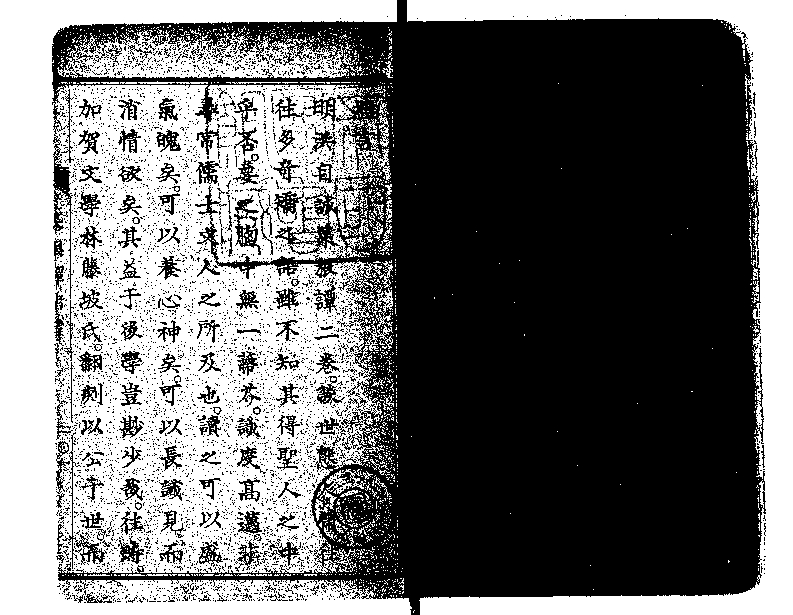 明洪自誠菜根譚二卷談世態人情往
往多奇獨之語雖不知其得聖人之中
乎否要之胸中無一蔕芥識度高邁非
尋常儒士文人之所及也讀之可以盛
氣魄矣可以養心神矣可以長識見而
消情欲矣其益于後學豈尠少哉往時
加賀文學林藤坡氏翻刻以公于世而